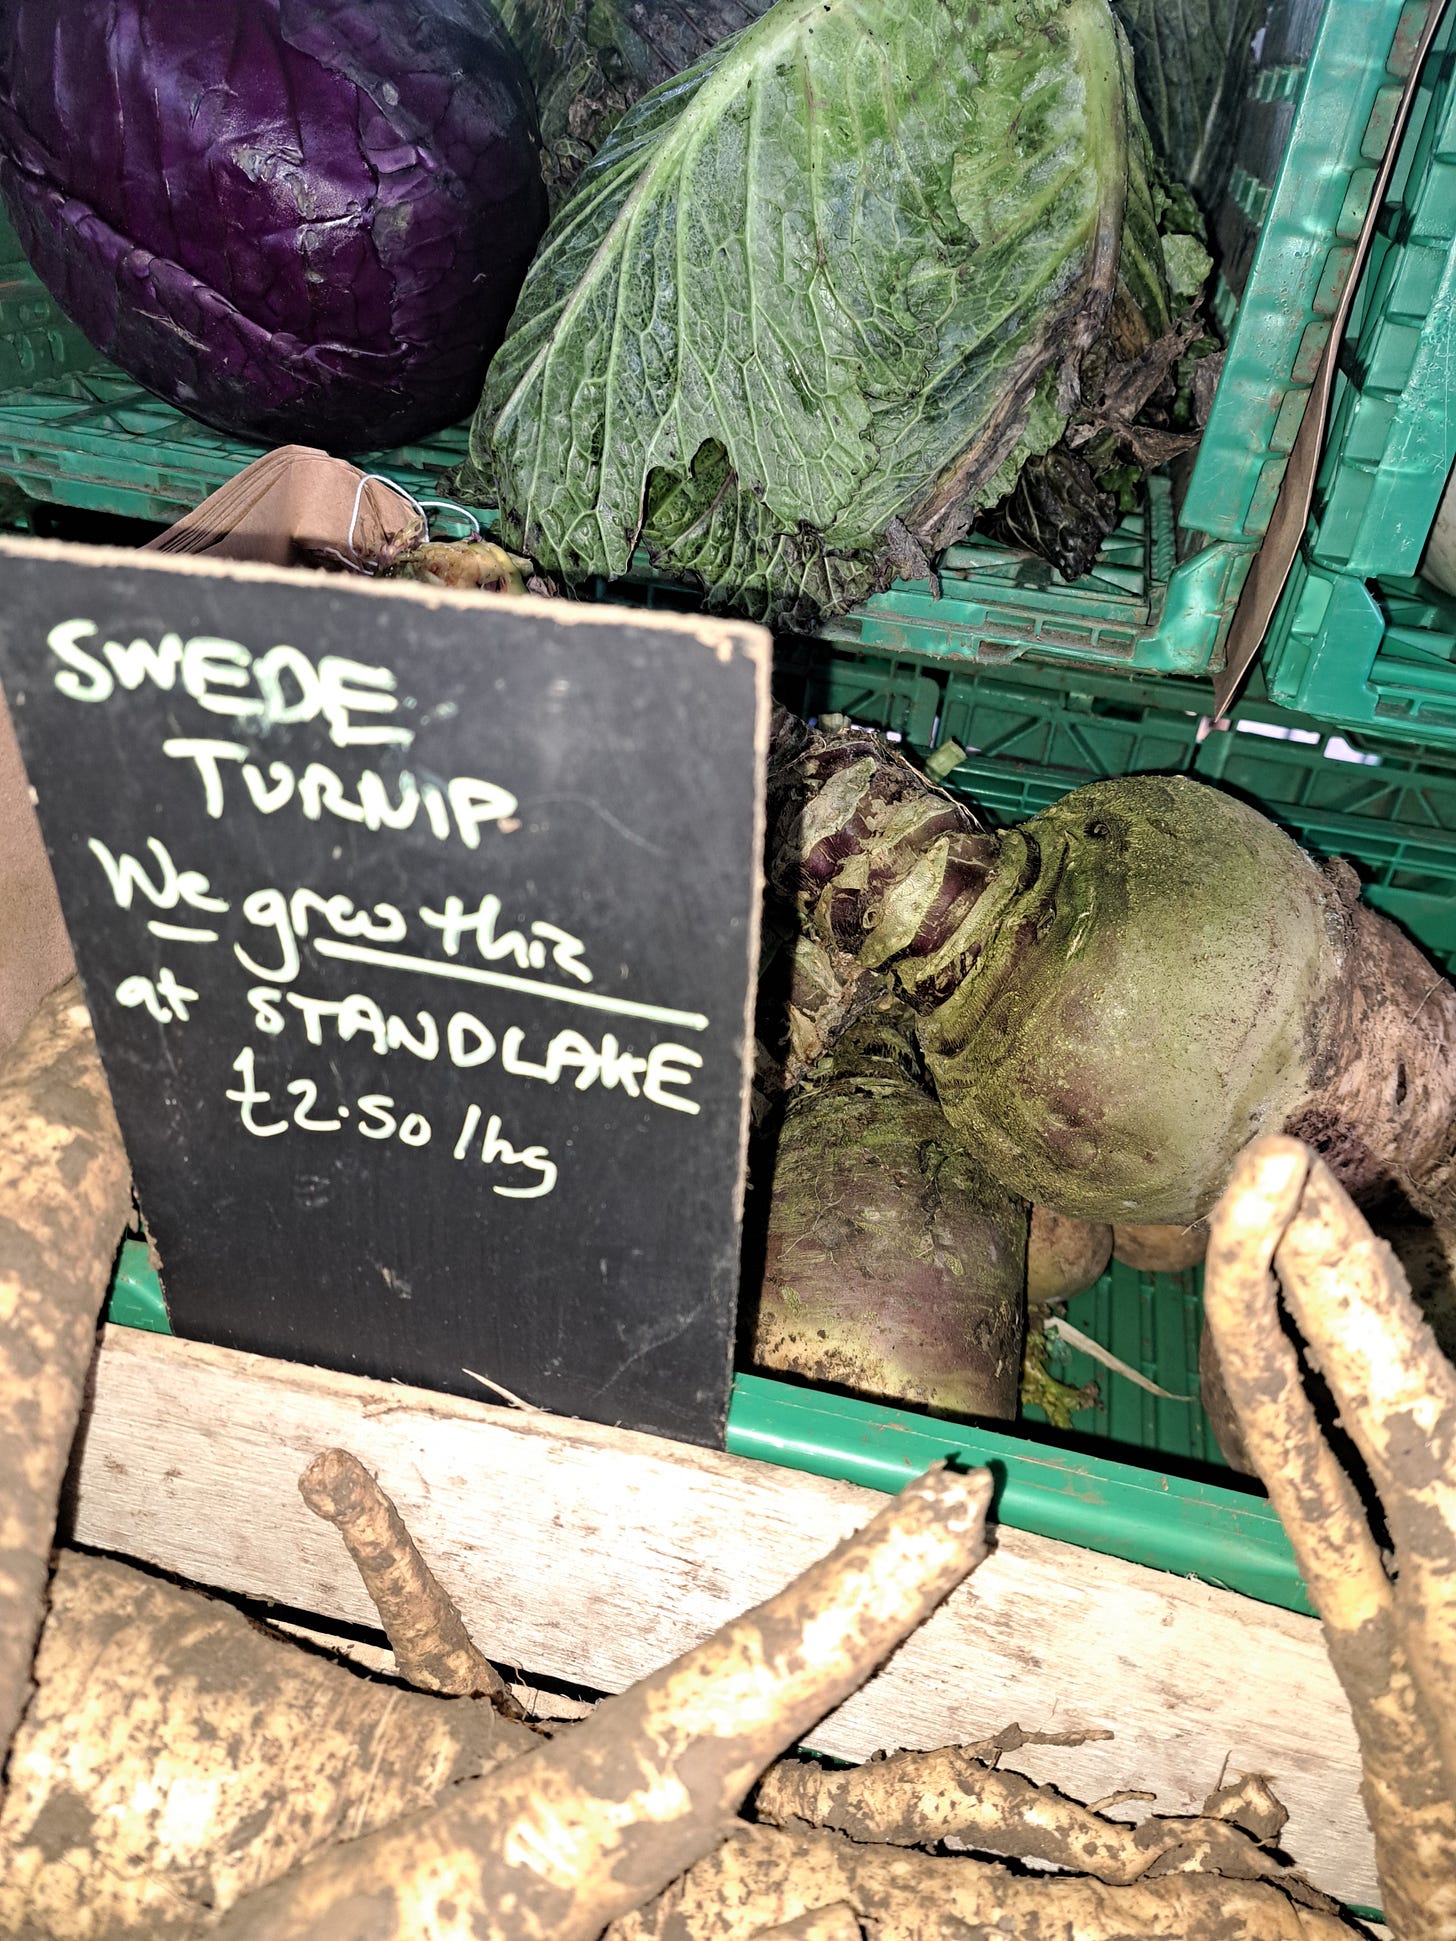 SWEDE
TURNIP
We grew this
at STANDLAKE
£2.50/kg